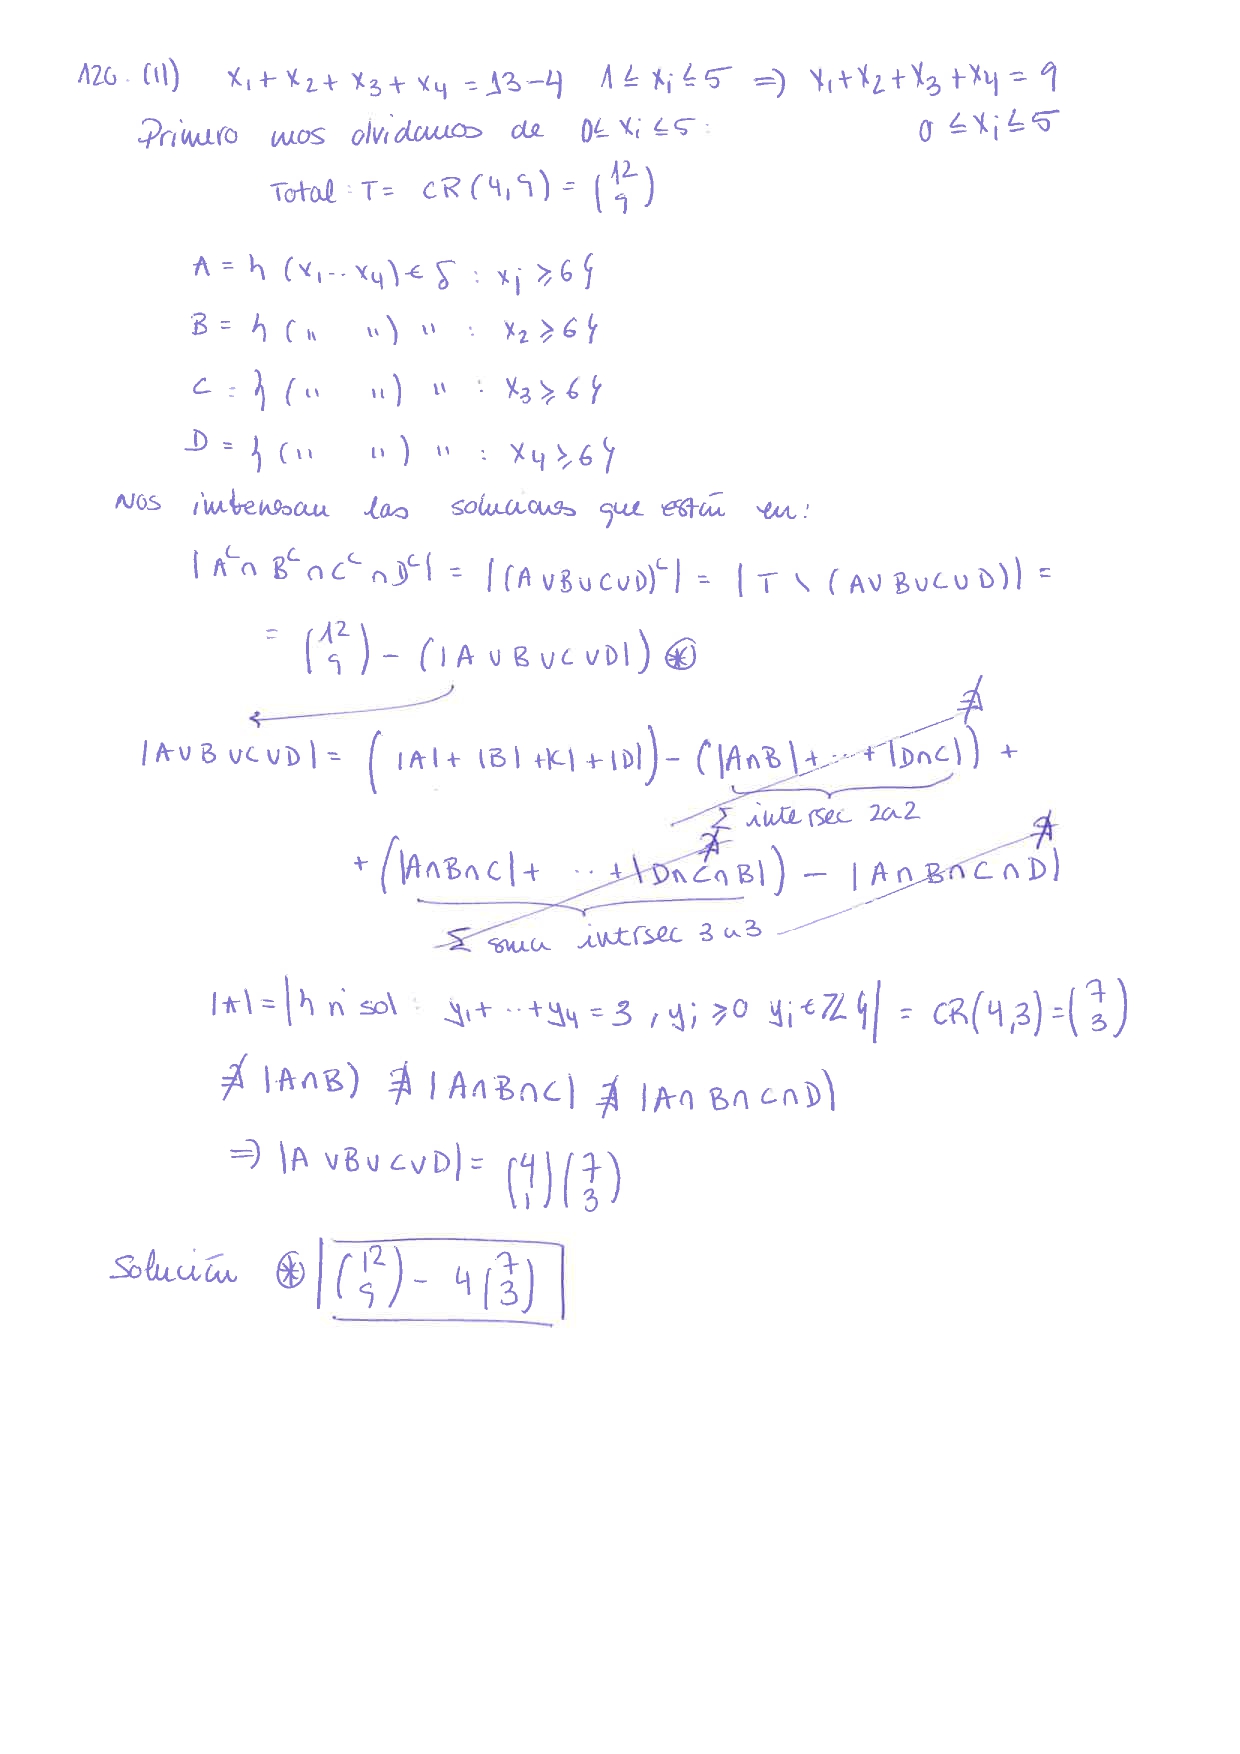 126. (11) x₁ + x₂ + x₃ + x₄ = 13 - 4 1 ≤ xᵢ ≤ 5 ⇒ x₁ + x₂ + x₃ + x₄ = 9
Primero nos olvidamos de 0 ≤ xᵢ ≤ 5: 0 ≤ xᵢ ≤ 5
Total: T = CR(4,9) = (12 9)
A = { (x₁ ... x₄) ∈ S : x₁ ≥ 6 }
B = { (" ") " : x₂ ≥ 6 }
C = { (" ") " : x₃ ≥ 6 }
D = { (" ") " : x₄ ≥ 6 }
Nos interesan las soluciones que están en:
|Aᶜ ∩ Bᶜ ∩ Cᶜ ∩ Dᶜ| = |(A ∪ B ∪ C ∪ D)ᶜ| = |T \ (A ∪ B ∪ C ∪ D)| =
= (12 9) - (|A ∪ B ∪ C ∪ D|) ⊛
∄
|A ∪ B ∪ C ∪ D| = (|A| + |B| + |C| + |D|) - (|A ∩ B| + ... + |D ∩ C|) +
Σ intersec 2a2
∄ ∄
+ (|A ∩ B ∩ C| + ... + |D ∩ C ∩ B|) - |A ∩ B ∩ C ∩ D|
Σ suma intrsec 3a3
|A| = |{ nº sol : y₁ + ... + y₄ = 3, yᵢ ≥ 0 yᵢ ∈ ℤ }| = CR(4,3) = (7 3)
∄ |A ∩ B| ∄ |A ∩ B ∩ C| ∄ |A ∩ B ∩ C ∩ D|
⇒ |A ∪ B ∪ C ∪ D| = (4 1)(7 3)
Solución ⊛ (12 9) - 4 (7 3)